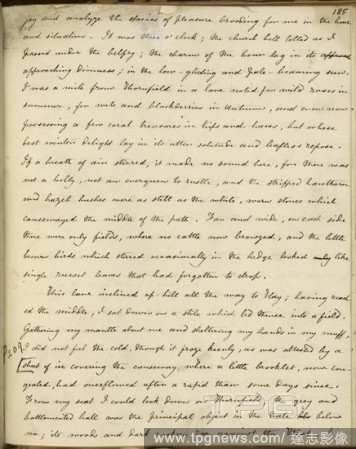 185
joy and analyze the species of pleasure brooding for me in the hour
and situation. It was three o'clock; the church bell tolled as I
passed under the belfry; the charm of the hour lay in its
approaching dimness; in the low-gliding and pale-beaming sun.
I was a mile from Thornfield in a lane noted for wild roses in
summer, for nuts and blackberries in Autumn, and even now
possessing a few coral treasures in hips and haws, but whose
best winter delight lay in its utter solitude and leafless repose.
If a breath of air stirred, it made no sound here, for there was
not a holly, not an evergreen to rustle, and the stripped hawthorn
and hazel bushes were as still as the white, worn stones which
causewayed the middle of the path. Far and wide, on each side
there were only fields, where no cattle now browzed, and the little
brown birds which stirred occasionally in the hedge looked like
single russet leaves that had forgotten to drop.
This lane inclined up-hill all the way to Hay; having reach-
ed the middle, I sat down on a stile which led thence into a field.
Gathering my mantle about me and sheltering my hands in my muff,
I did not feel the cold, though it froze keenly, as was attested by a
sheet of ice covering the causeway, where a little brooklet, now con-
gealed, had overflowed after a rapid thaw some days since.
From my seat I could look down on Thornfield; the grey and
battlemented hall was the principal object in the vale below
me; its woods and dark rookery rose against the West
TPG
www.tpgnews.com/達志影像